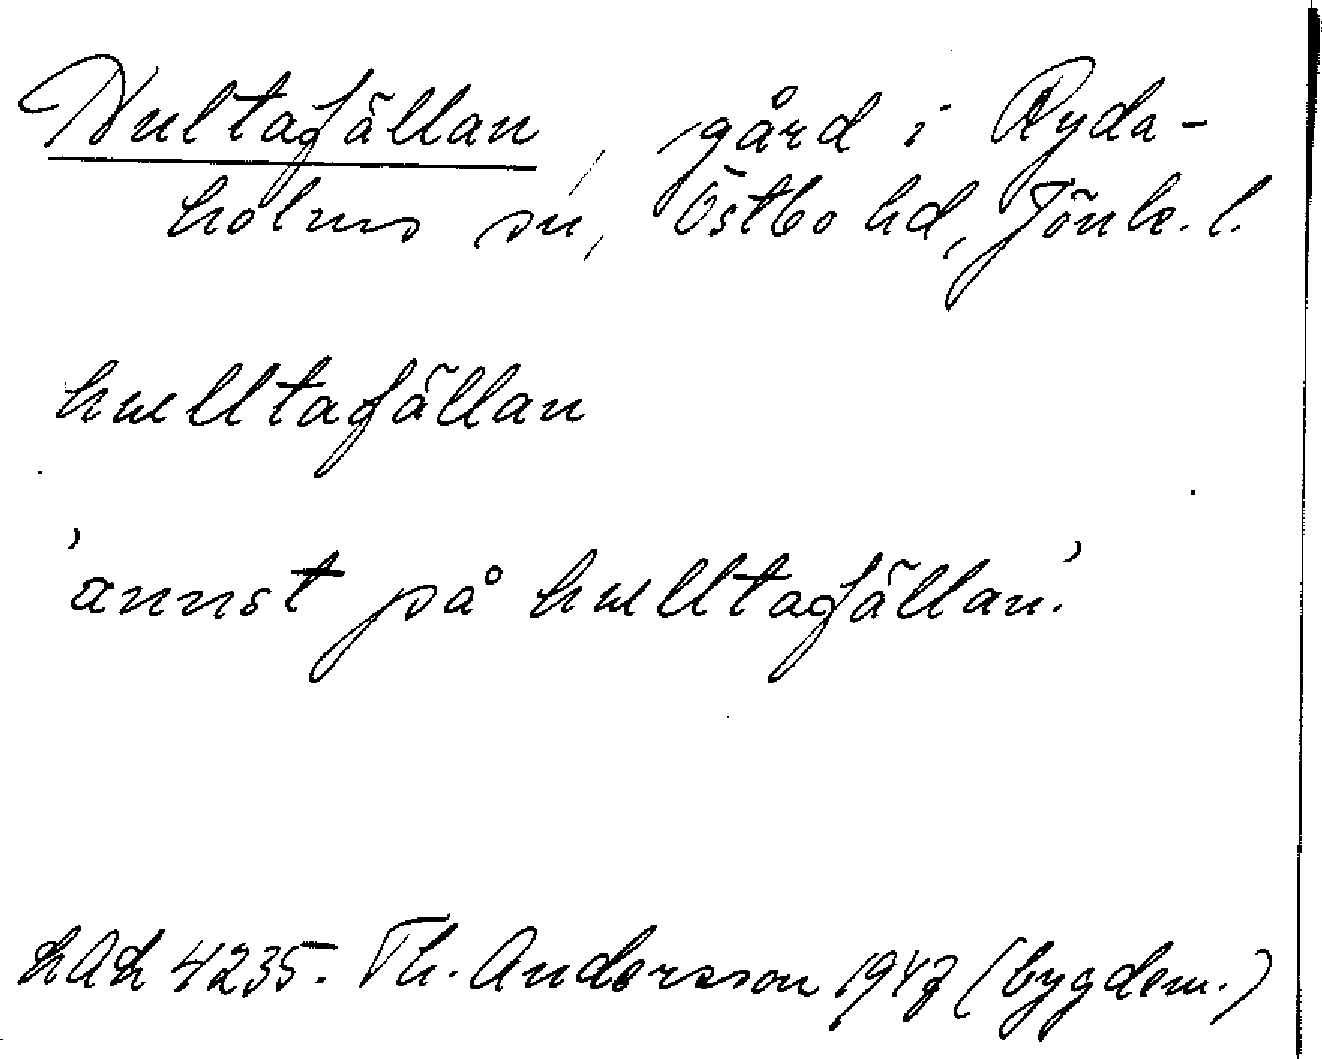 Hultafällan, gård i Ryda-
holms sn, Östbo hd, Jönk. l.
hulltafällan
'annst på hulltafällan.'
LAL 4235. Th. Andersson 1947 (bygdem.)